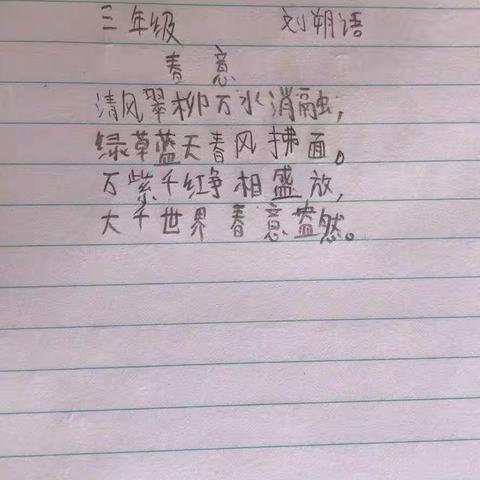 三年级 刘朔语
春意
清风翠柳万水消融，
绿草蓝天春风拂面。
万紫千红争相盛放，
大千世界春意盎然。